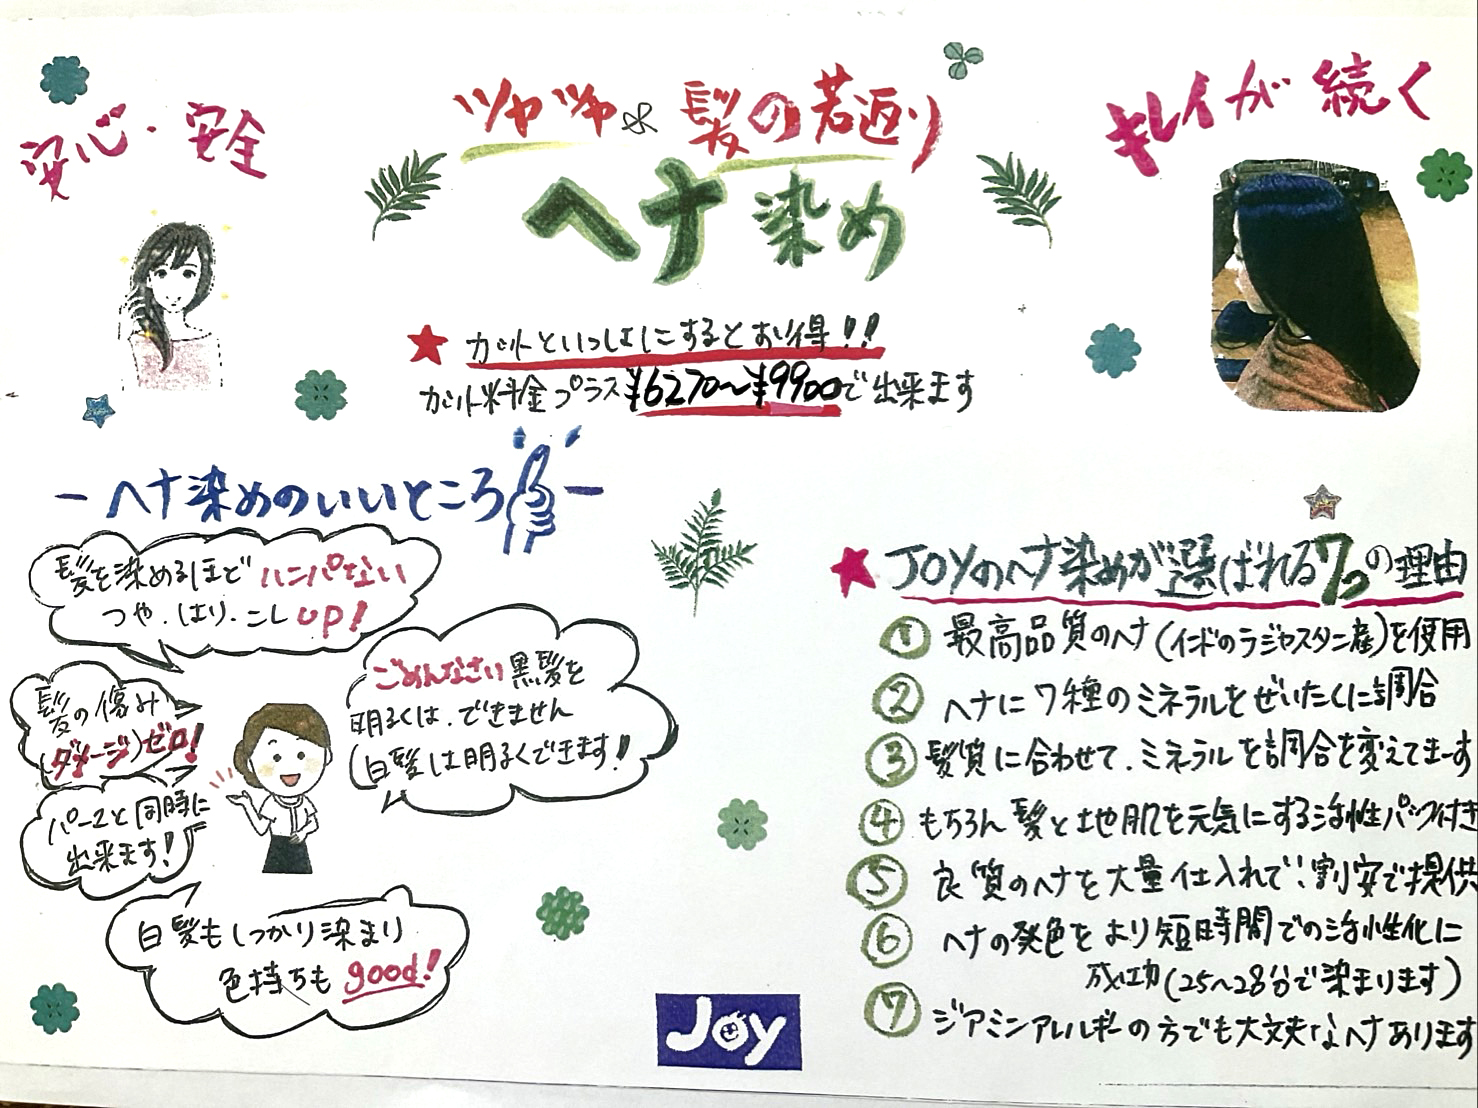 安心・安全
ツヤツヤ 髪の若返り
キレイが続く
ヘナ染め
★ カットといっしょにするとお得!!
カット料金プラス¥6270〜¥9900で出来ます
－ヘナ染めのいいところ－
髪を染めるほどハンパない
つや.はり.こしup!
ごめんなさい黒髪を
明るくは.できません
白髪は明るくできます!
髪の傷み
(ダメージ)ゼロ!
パーマと同時に
出来ます!
白髪もしっかり染まり
色持ちもgood!
★ JOYのヘナ染めが選ばれる7つの理由
① 最高品質のヘナ(インドのラジャスタン産)を使用
② ヘナに7種のミネラルをぜいたくに調合
③ 髪質に合わせて.ミネラルを調合を変えてます
④ もちろん髪と地肌を元気にする活性パック付き
⑤ 良質のヘナを大量仕入れで!割安で提供
⑥ ヘナの発色をより短時間での活性化に
成功(25〜28分で染まります)
⑦ ジアミンアレルギーの方でも大丈夫なヘナあります
Joy